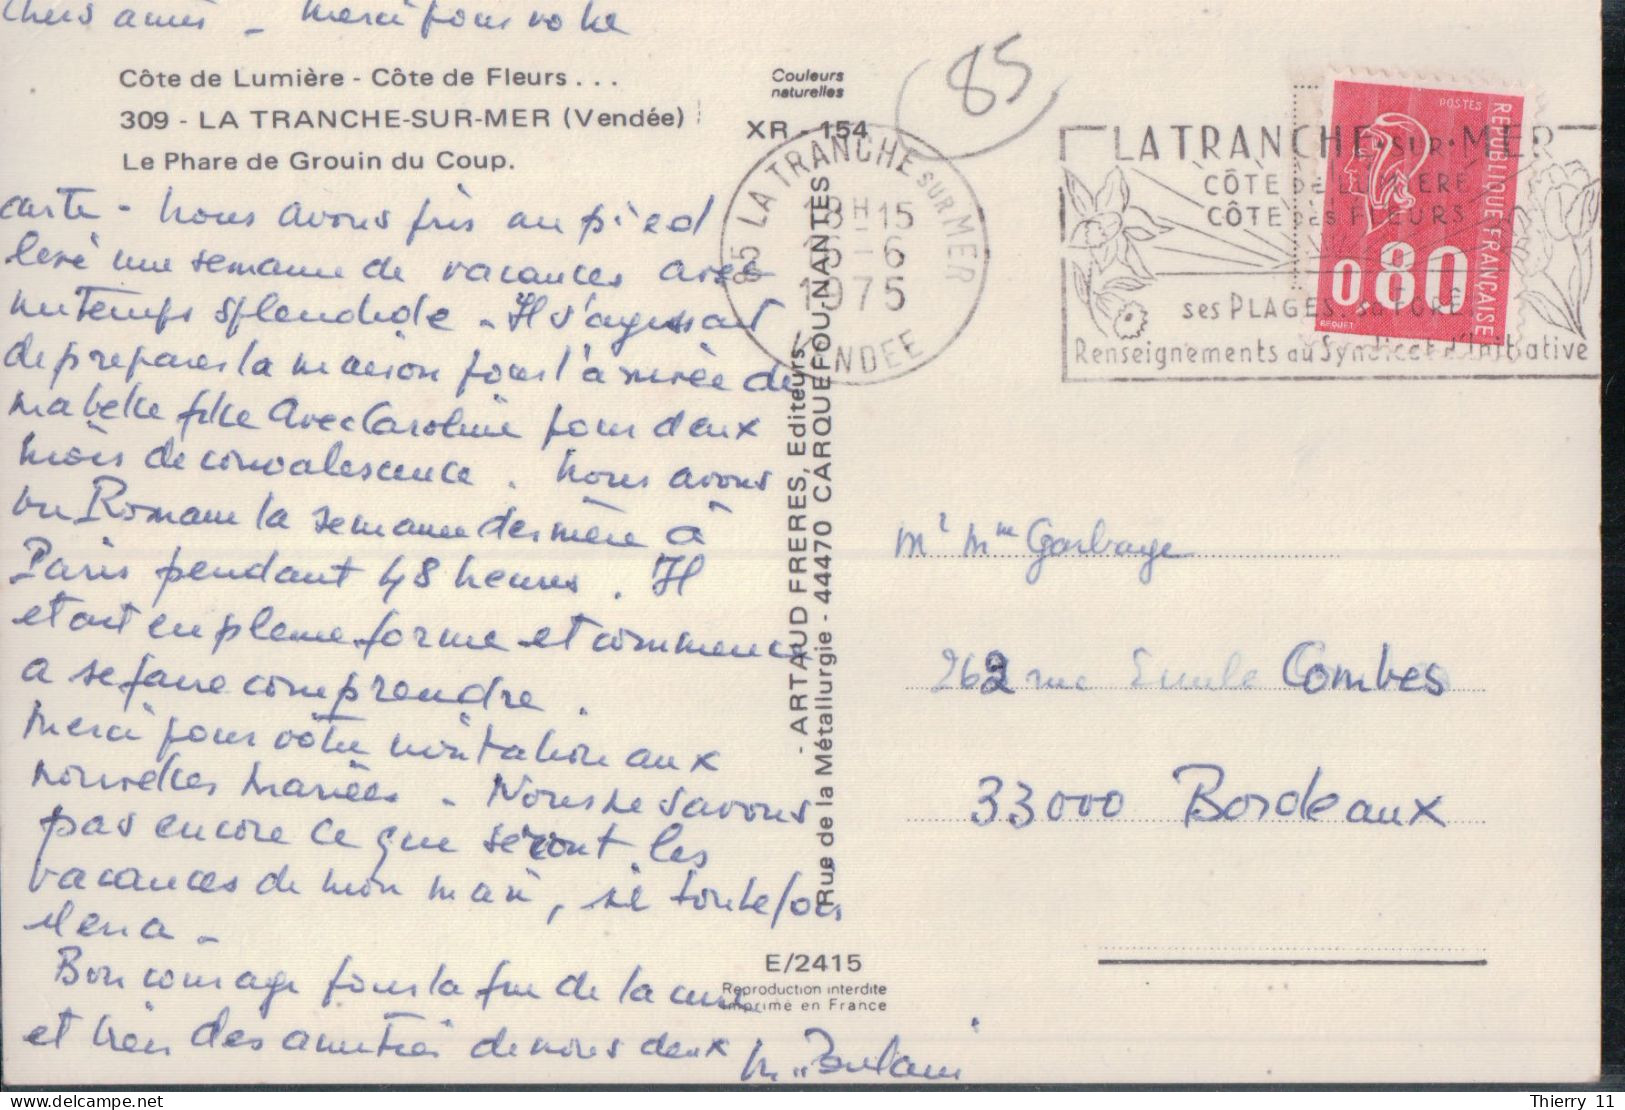 Chers amis - Merci pour votre
Côte de Lumière - Côte de Fleurs...
309 - LA TRANCHE-SUR-MER (Vendée)
Le Phare de Grouin du Coup.
carte - Nous avons pris au pied
levé une semaine de vacances avec
un temps splendide - Il s'agissait
de préparer la maison pour l'arrivée de
ma belle fille avec Caroline pour deux
mois de convalescence. Nous avons
vu Romain la semaine dernière à
Paris pendant 48 heures. Il
était en pleine forme et commence
a se faire comprendre.
Merci pour votre invitation aux
nouvelles mariées - Nous ne savons
pas encore ce que seront les
vacances de mon mari, si toutefois
il en a -
Bon courage pour la fin de la cure
et bien des amitiés de nous deux
Couleurs
naturelles
XR - 154
- ARTAUD FRERES, Editeurs -
Rue de la Métallurgie - 44470 CARQUEFOU-NANTES
E/2415
Reproduction interdite
Imprimé en France
85
85 LA TRANCHE SUR MER
18H15
6
1975
VENDEE
LA TRANCHE-SUR-MER
CÔTE DE LUMIERE
CÔTE DES FLEURS
ses PLAGES. sa FORÊT
Renseignements au Syndicat d'Initiative
POSTES
REPUBLIQUE FRANÇAISE
0,80
BEQUET
Mr Mme Garbaye
262 rue Emile Combes
33000 Bordeaux
delcampe.net
Thierry 11